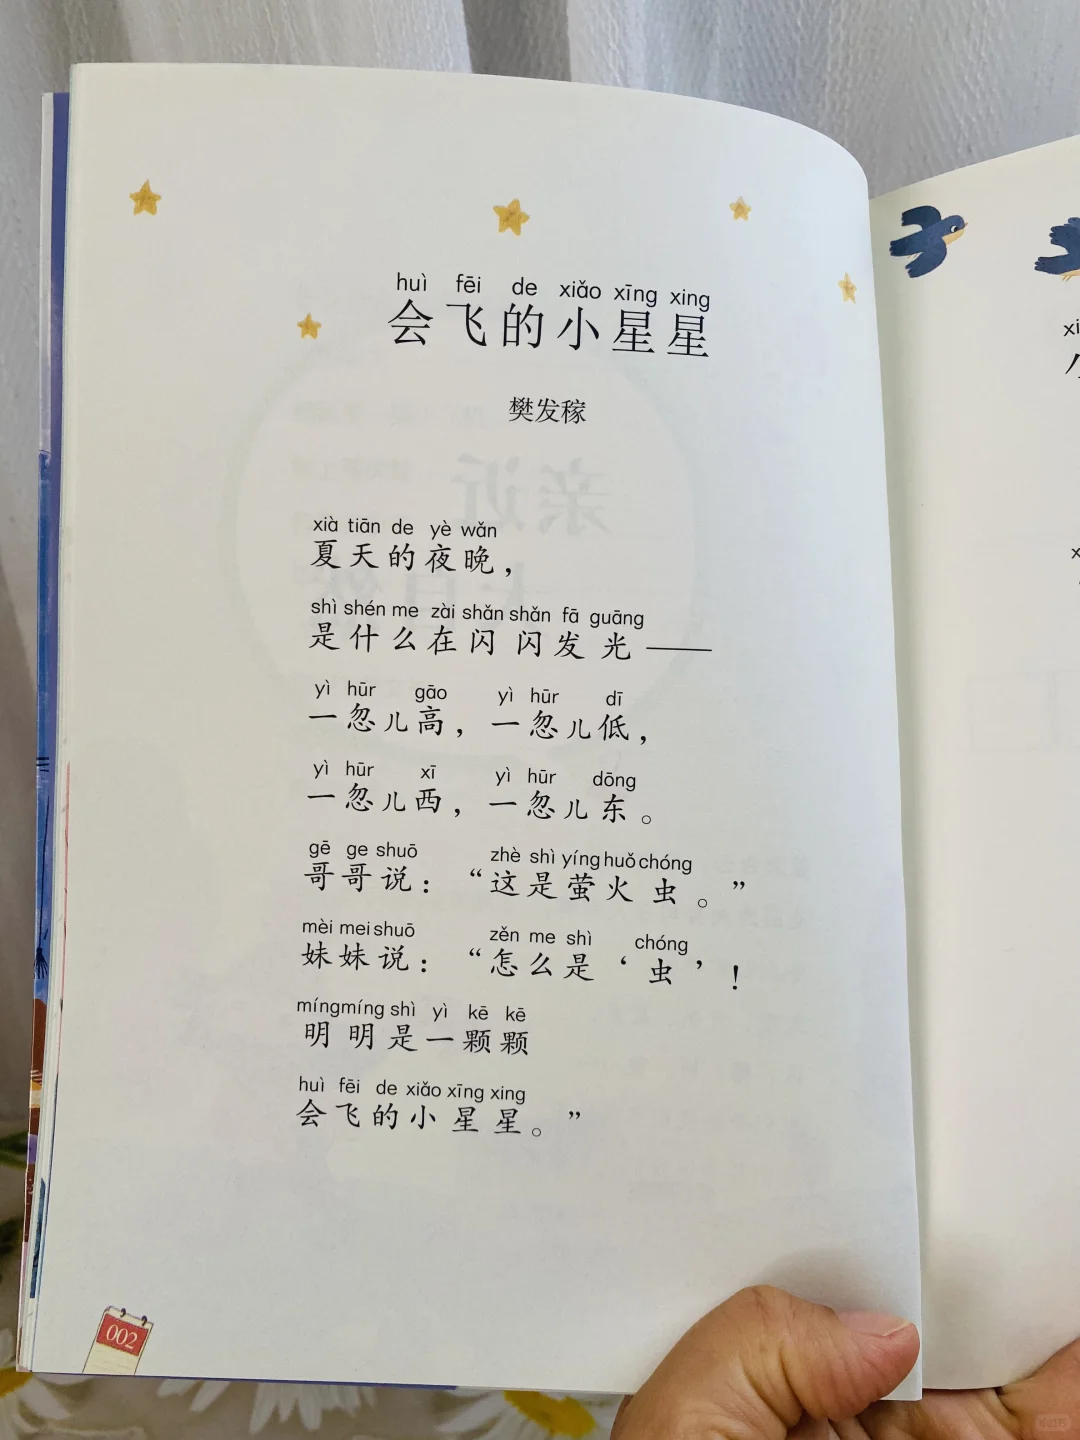 huì fēi de xiǎo xīng xing
会飞的小星星
樊发稼
xià tiān de yè wǎn
夏天的夜晚，
shì shén me zài shǎn shǎn fā guāng
是什么在闪闪发光——
yì hūr gāo yì hūr dī
一忽儿高，一忽儿低，
yì hūr xī yì hūr dōng
一忽儿西，一忽儿东。
gē ge shuō zhè shì yíng huǒ chóng
哥哥说：“这是萤火虫。”
mèi mei shuō zěn me shì chóng
妹妹说：“怎么是‘虫’！
míng míng shì yì kē kē
明明是一颗颗
huì fēi de xiǎo xīng xing
会飞的小星星。”
002